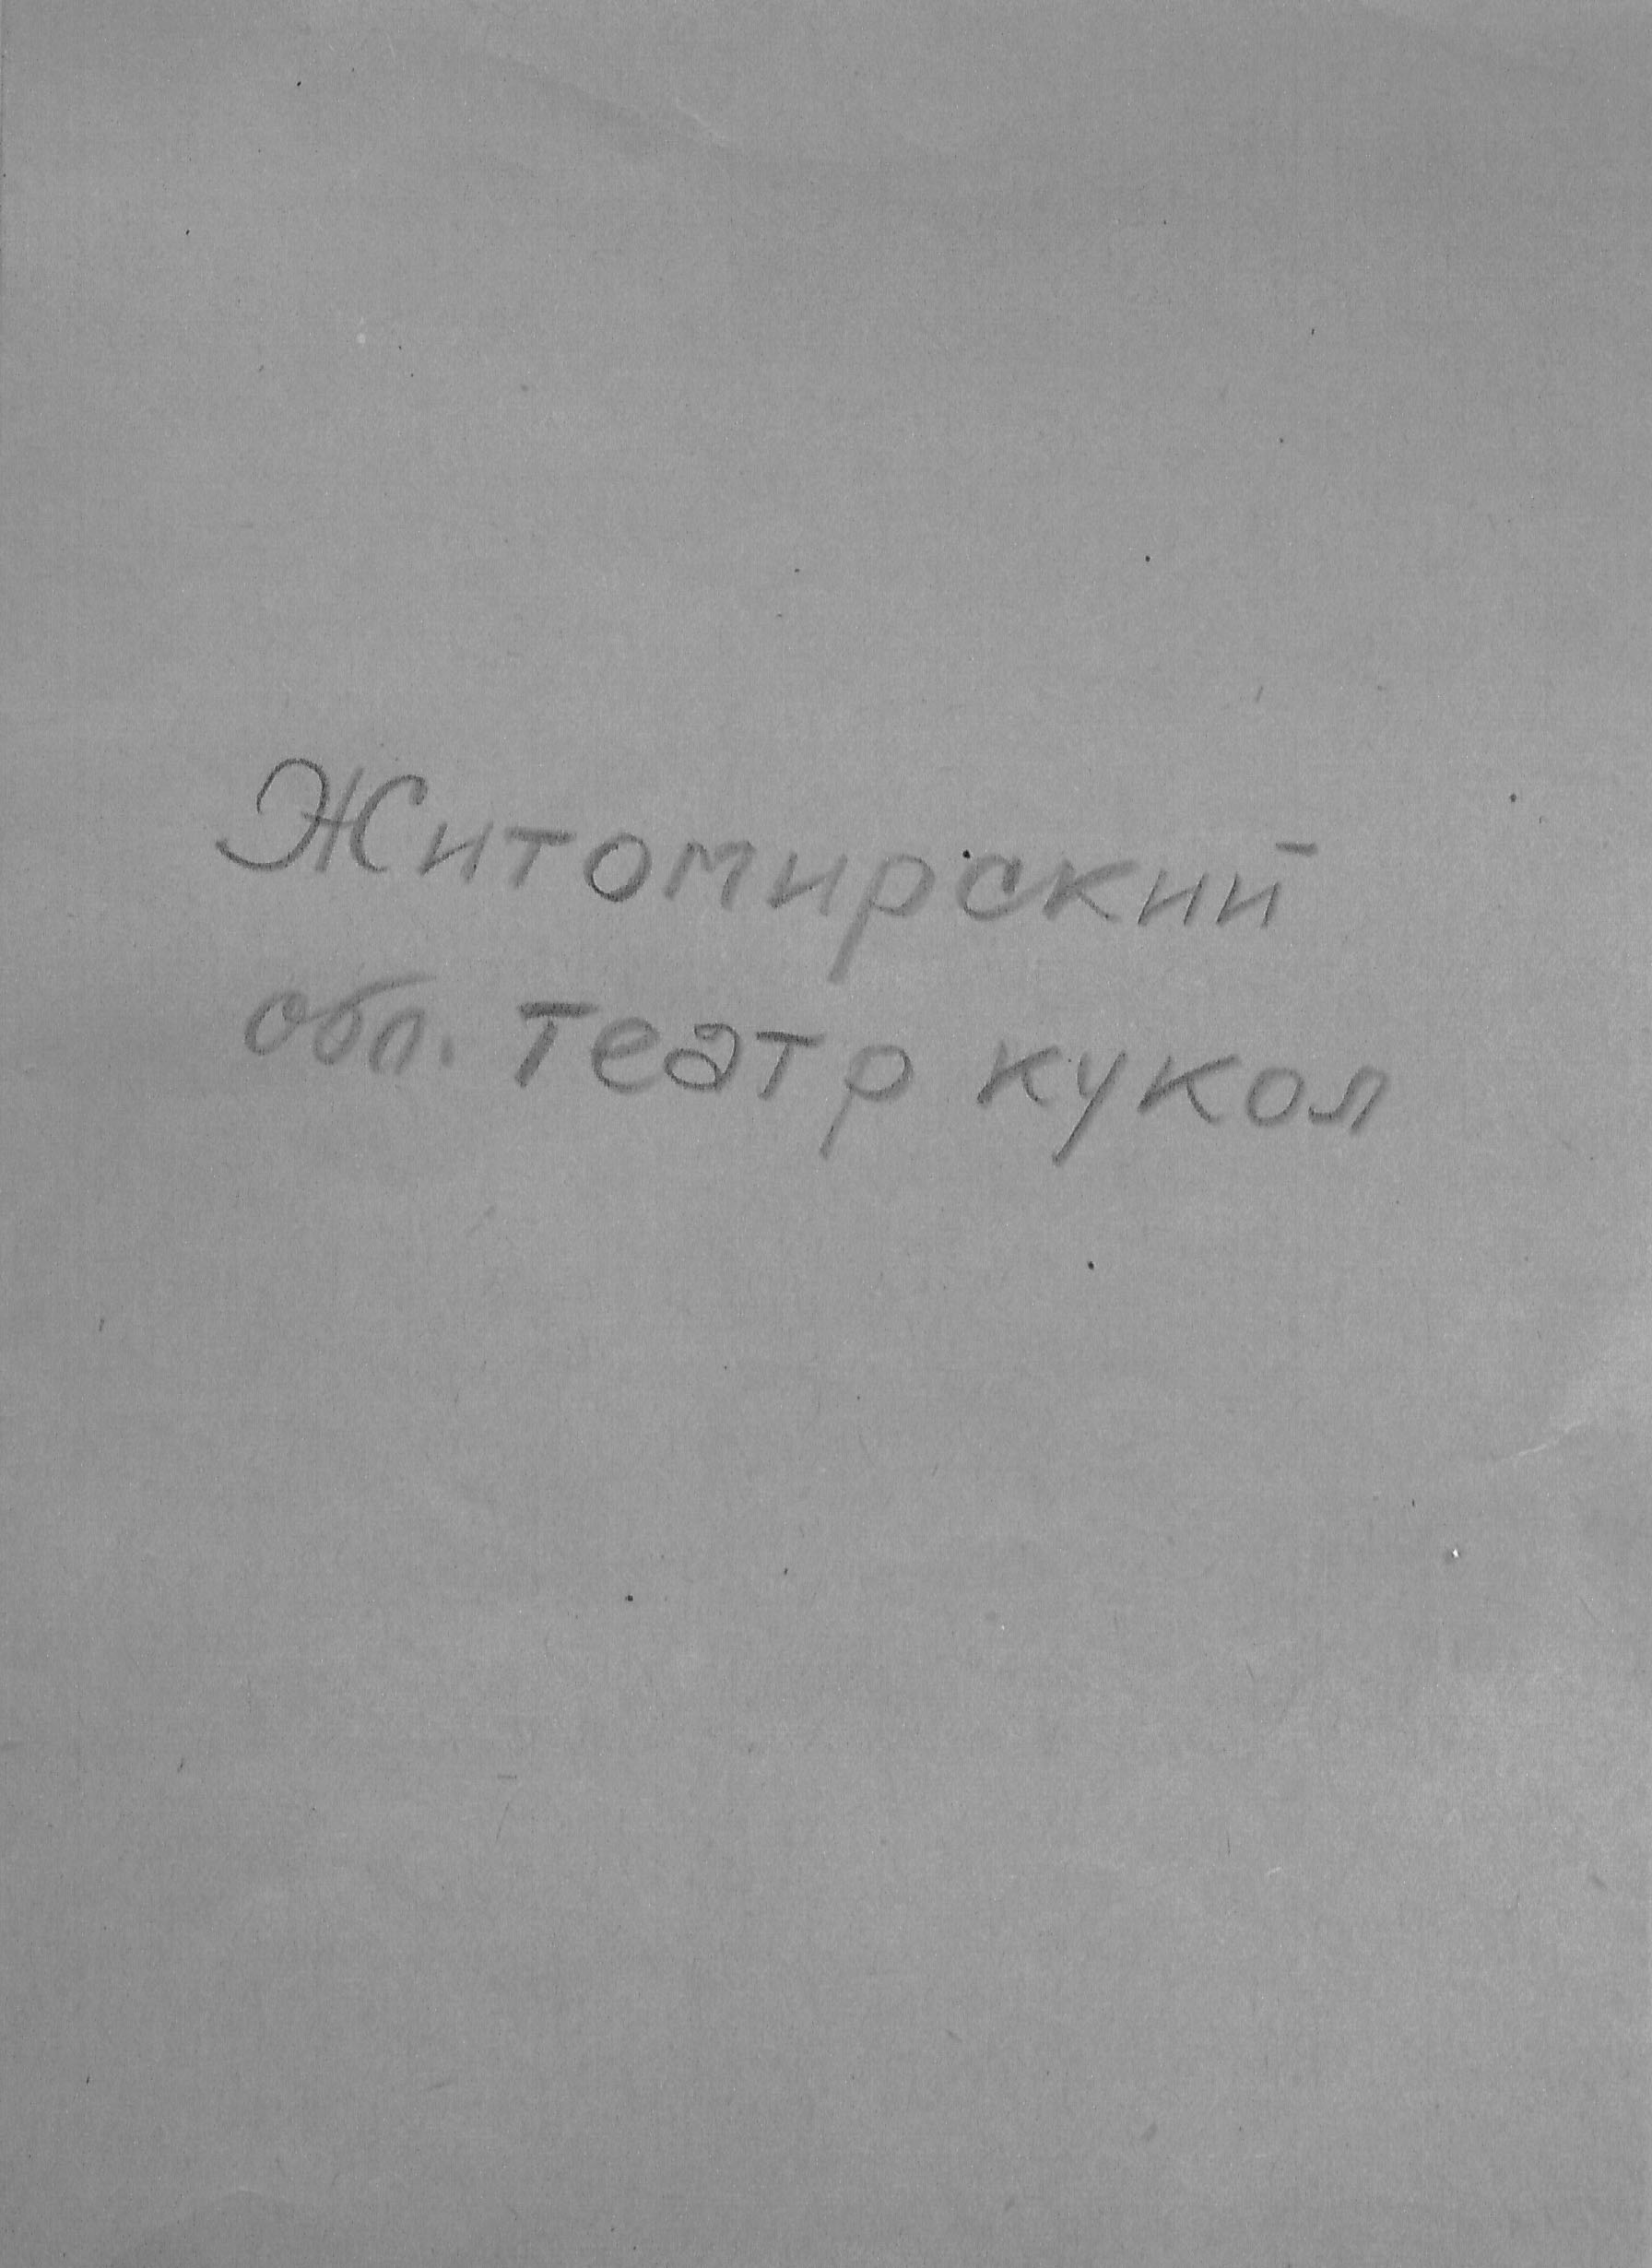 Житомирский
обл. театр кукол